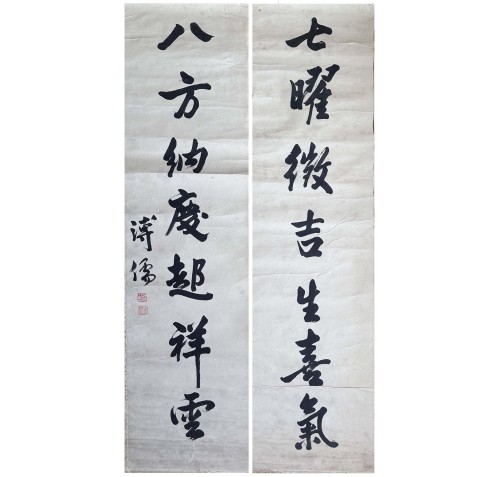 七曜徵吉生喜氣
八方納慶起祥雲
溥儒